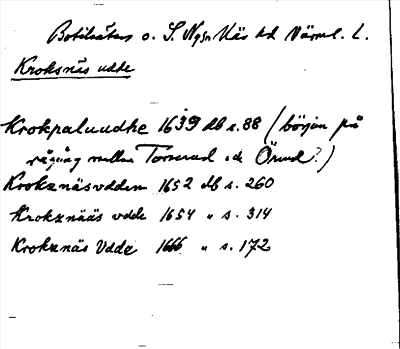 Botilsäter o. S. Ngsn Näs hd Värml. L.
Kroksnäs udde
Krokpaluudhe 1639 db s. 88 (början på
rågång mellan Torserud och Örud?)
Kroksnäsvdden 1652 db s. 260
Kroksnääs vdde 1654 " s. 314
Kroksnäs Vdde 1666 " s. 172